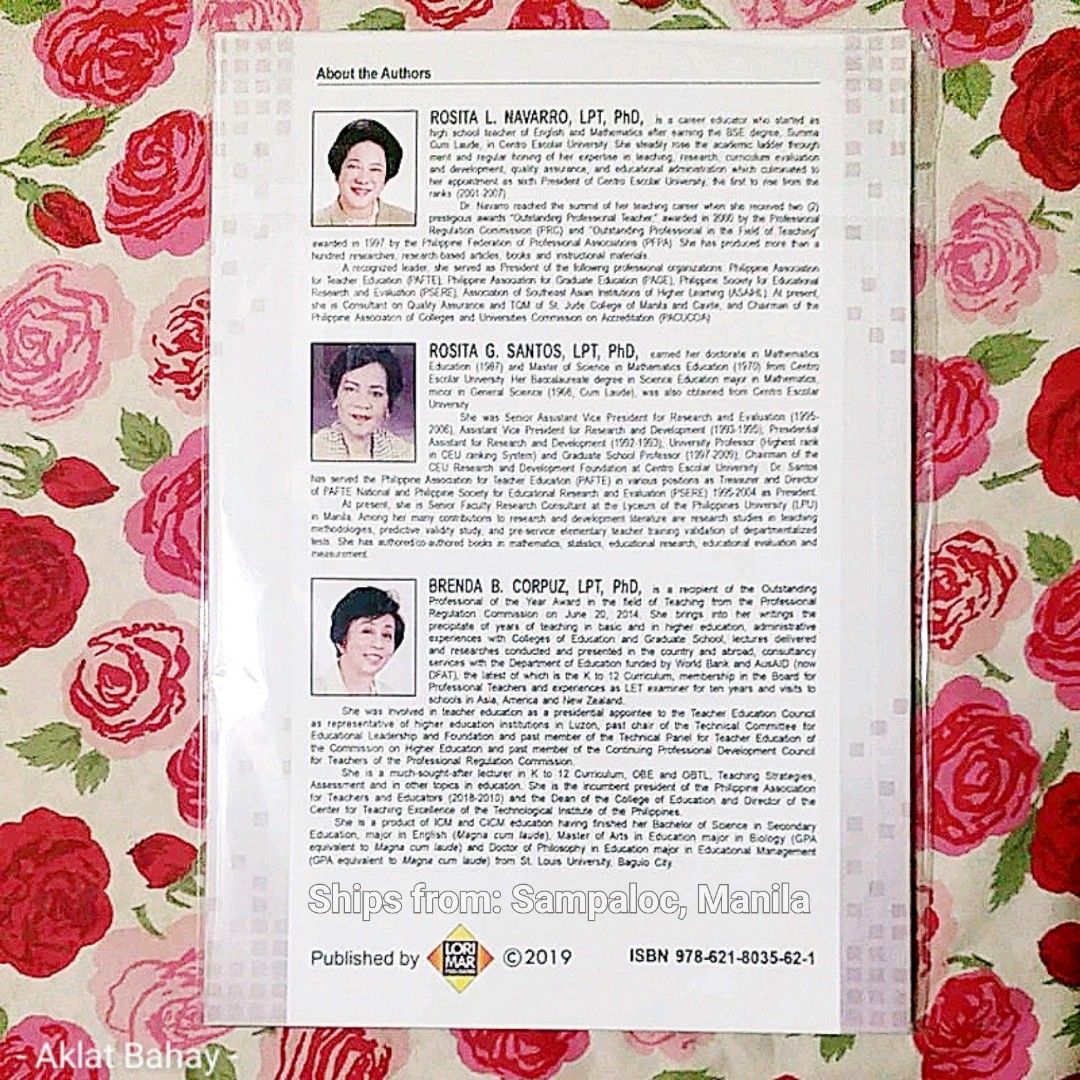 About the Authors
ROSITA L. NAVARRO, LPT, PhD, is a career educator who started as
high school teacher of English and Mathematics after earning the BSE degree, Summa
Cum Laude, in Centro Escolar University. She steadily rose the academic ladder through
merit and regular honing of her expertise in teaching, research, curriculum evaluation
and development, quality assurance, and educational administration which culminated to
her appointment as sixth President of Centro Escolar University, the first to rise from the
ranks (2001-2007)
Dr. Navarro reached the summit of her teaching career when she received two (2)
prestigious awards "Outstanding Professional Teacher," awarded in 2000 by the Professional
Regulation Commission (PRC) and "Outstanding Professional in the Field of Teaching"
awarded in 1997 by the Philippine Federation of Professional Associations (PFPA). She has produced more than a
hundred researches, research-based articles, books and instructional materials.
A recognized leader, she served as President of the following professional organizations: Philippine Association
for Teacher Education (PAFTE), Philippine Association for Graduate Education (PAGE), Philippine Society for Educational
Research and Evaluation (PSERE), Association of Southeast Asian Institutions of Higher Learning (ASAIHL). At present,
she is Consultant on Quality Assurance and TQM of St. Jude College of Manila and Cavite, and Chairman of the
Philippine Association of Colleges and Universities Commission on Accreditation (PACUCOA)
ROSITA G. SANTOS, LPT, PhD, earned her doctorate in Mathematics
Education (1987) and Master of Science in Mathematics Education (1970) from Centro
Escolar University. Her Baccalaureate degree in Science Education major in Mathematics,
minor in General Science (1966, Cum Laude), was also obtained from Centro Escolar
University.
She was Senior Assistant Vice President for Research and Evaluation (1995-
2006), Assistant Vice President for Research and Development (1993-1995), Presidential
Assistant for Research and Development (1992-1993), University Professor (Highest rank
in CEU ranking System) and Graduate School Professor (1997-2009), Chairman of the
CEU Research and Development Foundation at Centro Escolar University. Dr. Santos
has served the Philippine Association for Teacher Education (PAFTE) in various positions as Treasurer and Director
of PAFTE National and Philippine Society for Educational Research and Evaluation (PSERE) 1995-2004 as President.
At present, she is Senior Faculty Research Consultant at the Lyceum of the Philippines University (LPU)
in Manila. Among her many contributions to research and development literature are research studies in teaching
methodologies, predictive validity study, and pre-service elementary teacher training validation of departmentalized
tests. She has authored/co-authored books in mathematics, statistics, educational research, educational evaluation and
measurement.
BRENDA B. CORPUZ, LPT, PhD, is a recipient of the Outstanding
Professional of the Year Award in the field of Teaching from the Professional
Regulation Commission on June 20, 2014. She brings into her writings the
precipitate of years of teaching in basic and in higher education, administrative
experiences with Colleges of Education and Graduate School, lectures delivered
and researches conducted and presented in the country and abroad, consultancy
services with the Department of Education funded by World Bank and AusAID (now
DFAT), the latest of which is the K to 12 Curriculum, membership in the Board for
Professional Teachers and experiences as LET examiner for ten years and visits to
schools in Asia, America and New Zealand.
She was involved in teacher education as a presidential appointee to the Teacher Education Council
as representative of higher education institutions in Luzon, past chair of the Technical Committee for
Educational Leadership and Foundation and past member of the Technical Panel for Teacher Education of
the Commission on Higher Education and past member of the Continuing Professional Development Council
for Teachers of the Professional Regulation Commission.
She is a much-sought-after lecturer in K to 12 Curriculum, OBE and OBTL, Teaching Strategies,
Assessment and in other topics in education. She is the incumbent president of the Philippine Association
for Teachers and Educators (2018-2010) and the Dean of the College of Education and Director of the
Center for Teaching Excellence of the Technological Institute of the Philippines.
She is a product of ICM and CICM education having finished her Bachelor of Science in Secondary
Education, major in English (Magna cum laude), Master of Arts in Education major in Biology (GPA
equivalent to Magna cum laude) and Doctor of Philosophy in Education major in Educational Management
(GPA equivalent to Magna cum laude) from St. Louis University, Baguio City.
Ships from: Sampaloc, Manila
Published by LORI MAR ©2019 ISBN 978-621-8035-62-1
- Aklat Bahay -